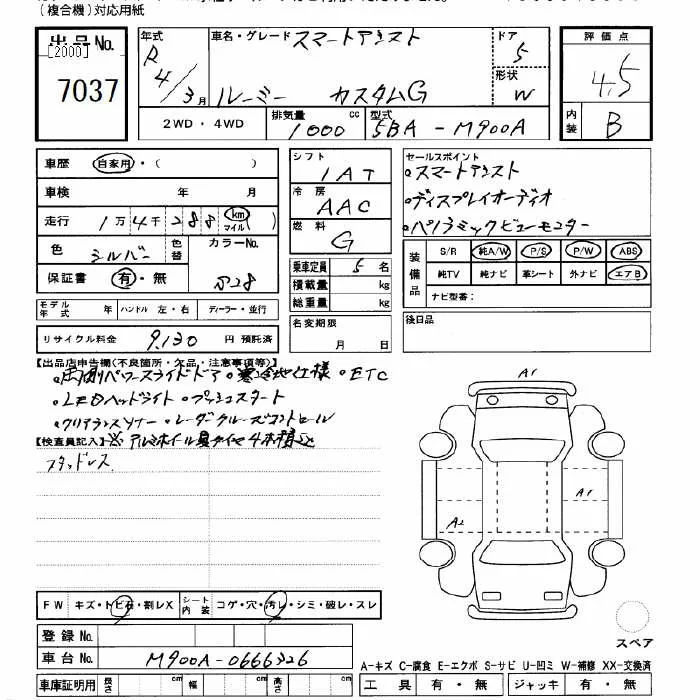 (複合機)対応用紙
出品No. [2000] 7037
年式 R4/3月
車名・グレード スマートアシスト
ルーミー カスタムG
ドア 5
形状 W
評価点 4.5
内装 B
2WD・4WD
排気量 1000 cc
型式 5BA-M900A
車歴 自家用・( )
車検 年 月
走行 1万4千288 km マイル
色 シルバー 色替
カラーNo. S28
保証書 有・無
シフト IAT
冷房 AAC
燃料 G
乗車定員 5名
積載量 kg
総重量 kg
セールスポイント
・スマートアシスト
・ディスプレイオーディオ
・パノラミックビューモニター
装備品 S/R 純A/W P/S P/W ABS
純TV 純ナビ 革シート 外ナビ エアB
ナビ型番:
モデル年式 ハンドル 左・右 ディーラー・並行
リサイクル料金 9,130 円 預託済
名変期限 月 日
後日品
【出品店申告欄(不良箇所・欠品・注意事項等)】
・両側パワースライドドア ・寒冷地仕様 ・ETC
・LEDヘッドライト ・プッシュスタート
・クリアランスソナー ・レーダークルーズコントロール
【検査員記入】※アルミホイール夏タイヤ4本積込
スタッドレス
A1
A1
A2
FW キズ・トビ石・割レX
シート内装 コゲ・穴・汚レ・シミ・破レ・スレ
登録No.
車台No. M900A-0666326
スペア
A-キズ C-腐食 E-エクボ S-サビ U-凹ミ W-補修 XX-交換済
車庫証明用 長さ cm 幅 cm 高さ cm
工具 有・無 ジャッキ 有・無